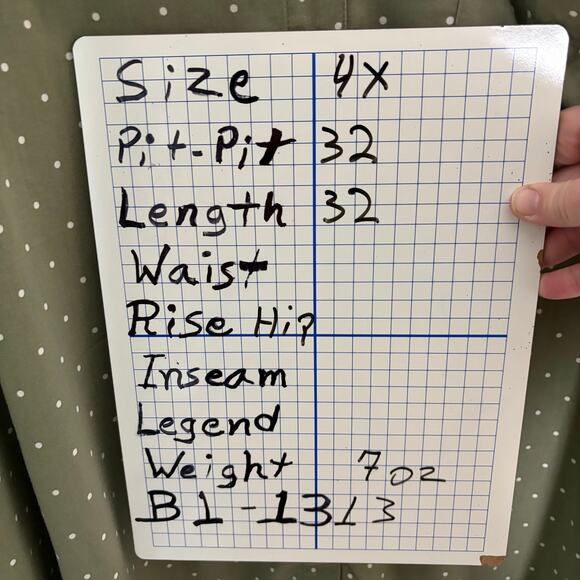 Size 4X
Pit-Pit 32
Length 32
Waist
Rise Hip
Inseam
Legend
Weight 7oz
B1-1313